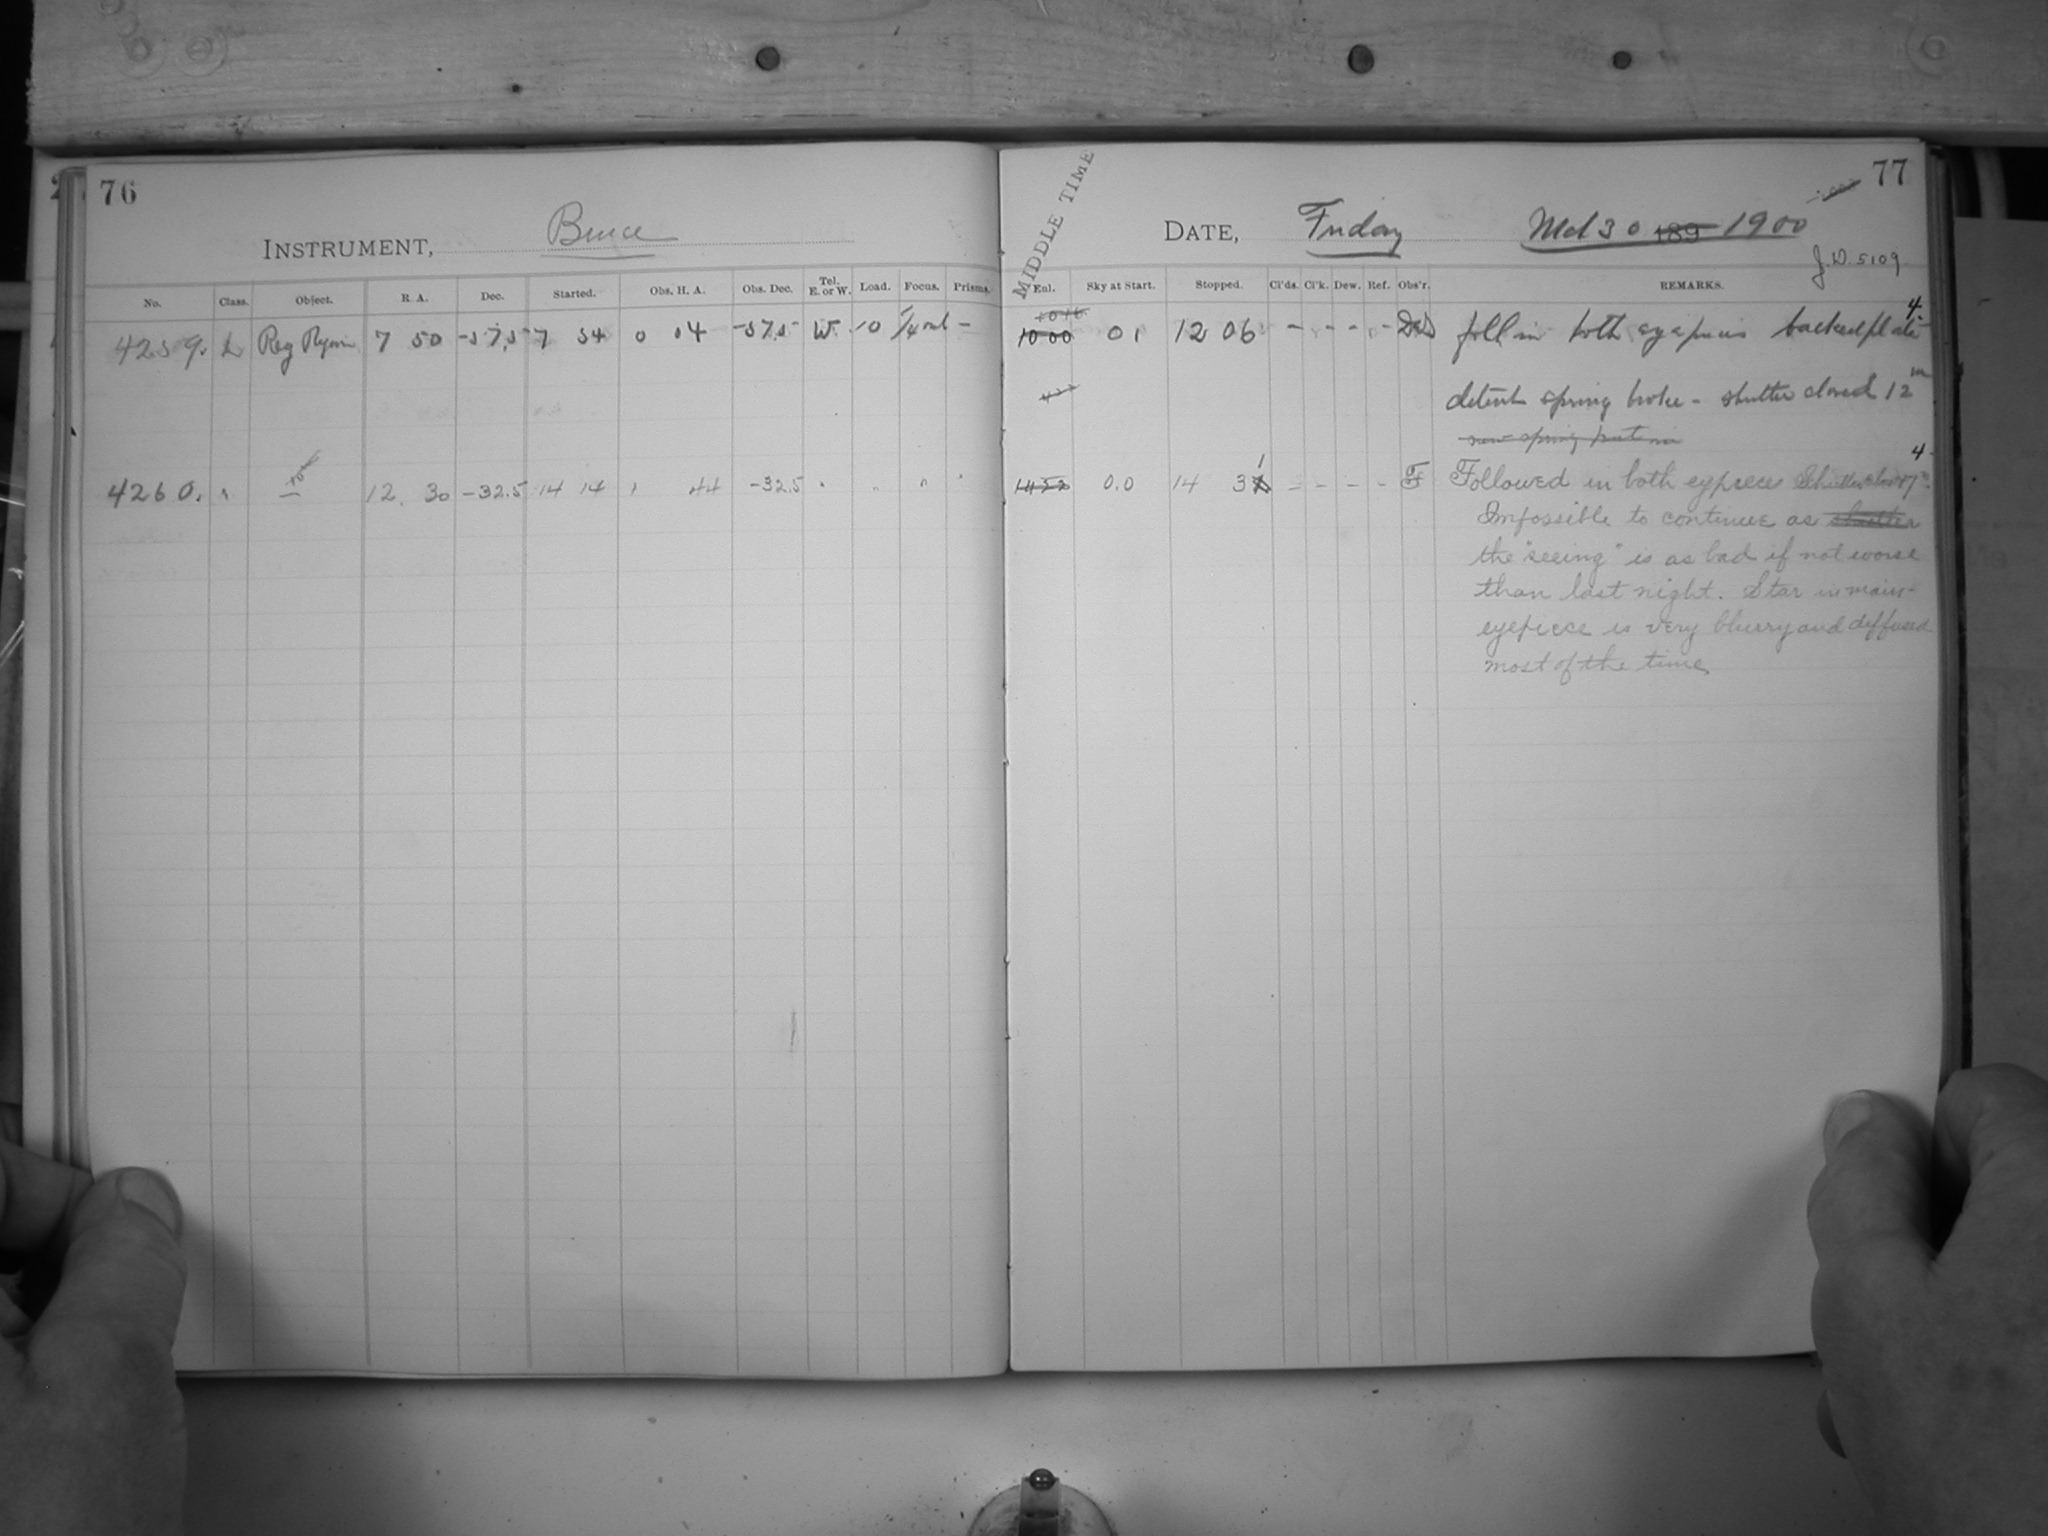 76
INSTRUMENT, Bruce
No. Class. Object. R. A. Dec. Started. Obs. H. A. Obs. Dec. Tel. E. or W. Load. Focus. Prisms.
4259. L Reg 7 50 -57.5 7 54 0 04 -57.5 W. 10 -
4260. " 12. 30 -32.5 14 14 1 44 -32.5 " " " "
77
MIDDLE TIME
DATE, Friday Mch 30 189 1900
J.D. 5109
Enl. Sky at Start. Stopped. Cl'ds. Cl'k. Dew. Ref. Obs'r. REMARKS.
1016
1000 01 12 06 - - - - foll in both eyepieces backed plate 4.
detent spring broke - shutter closed 12m
new spring put in
1422 0.0 14 31 - - - - F Followed in both eypieces Shutter 4.
Impossible to continue as shutter
the "seeing" is as bad if not worse
than last night. Star in main-
eyepiece is very blurry and diffused
most of the time